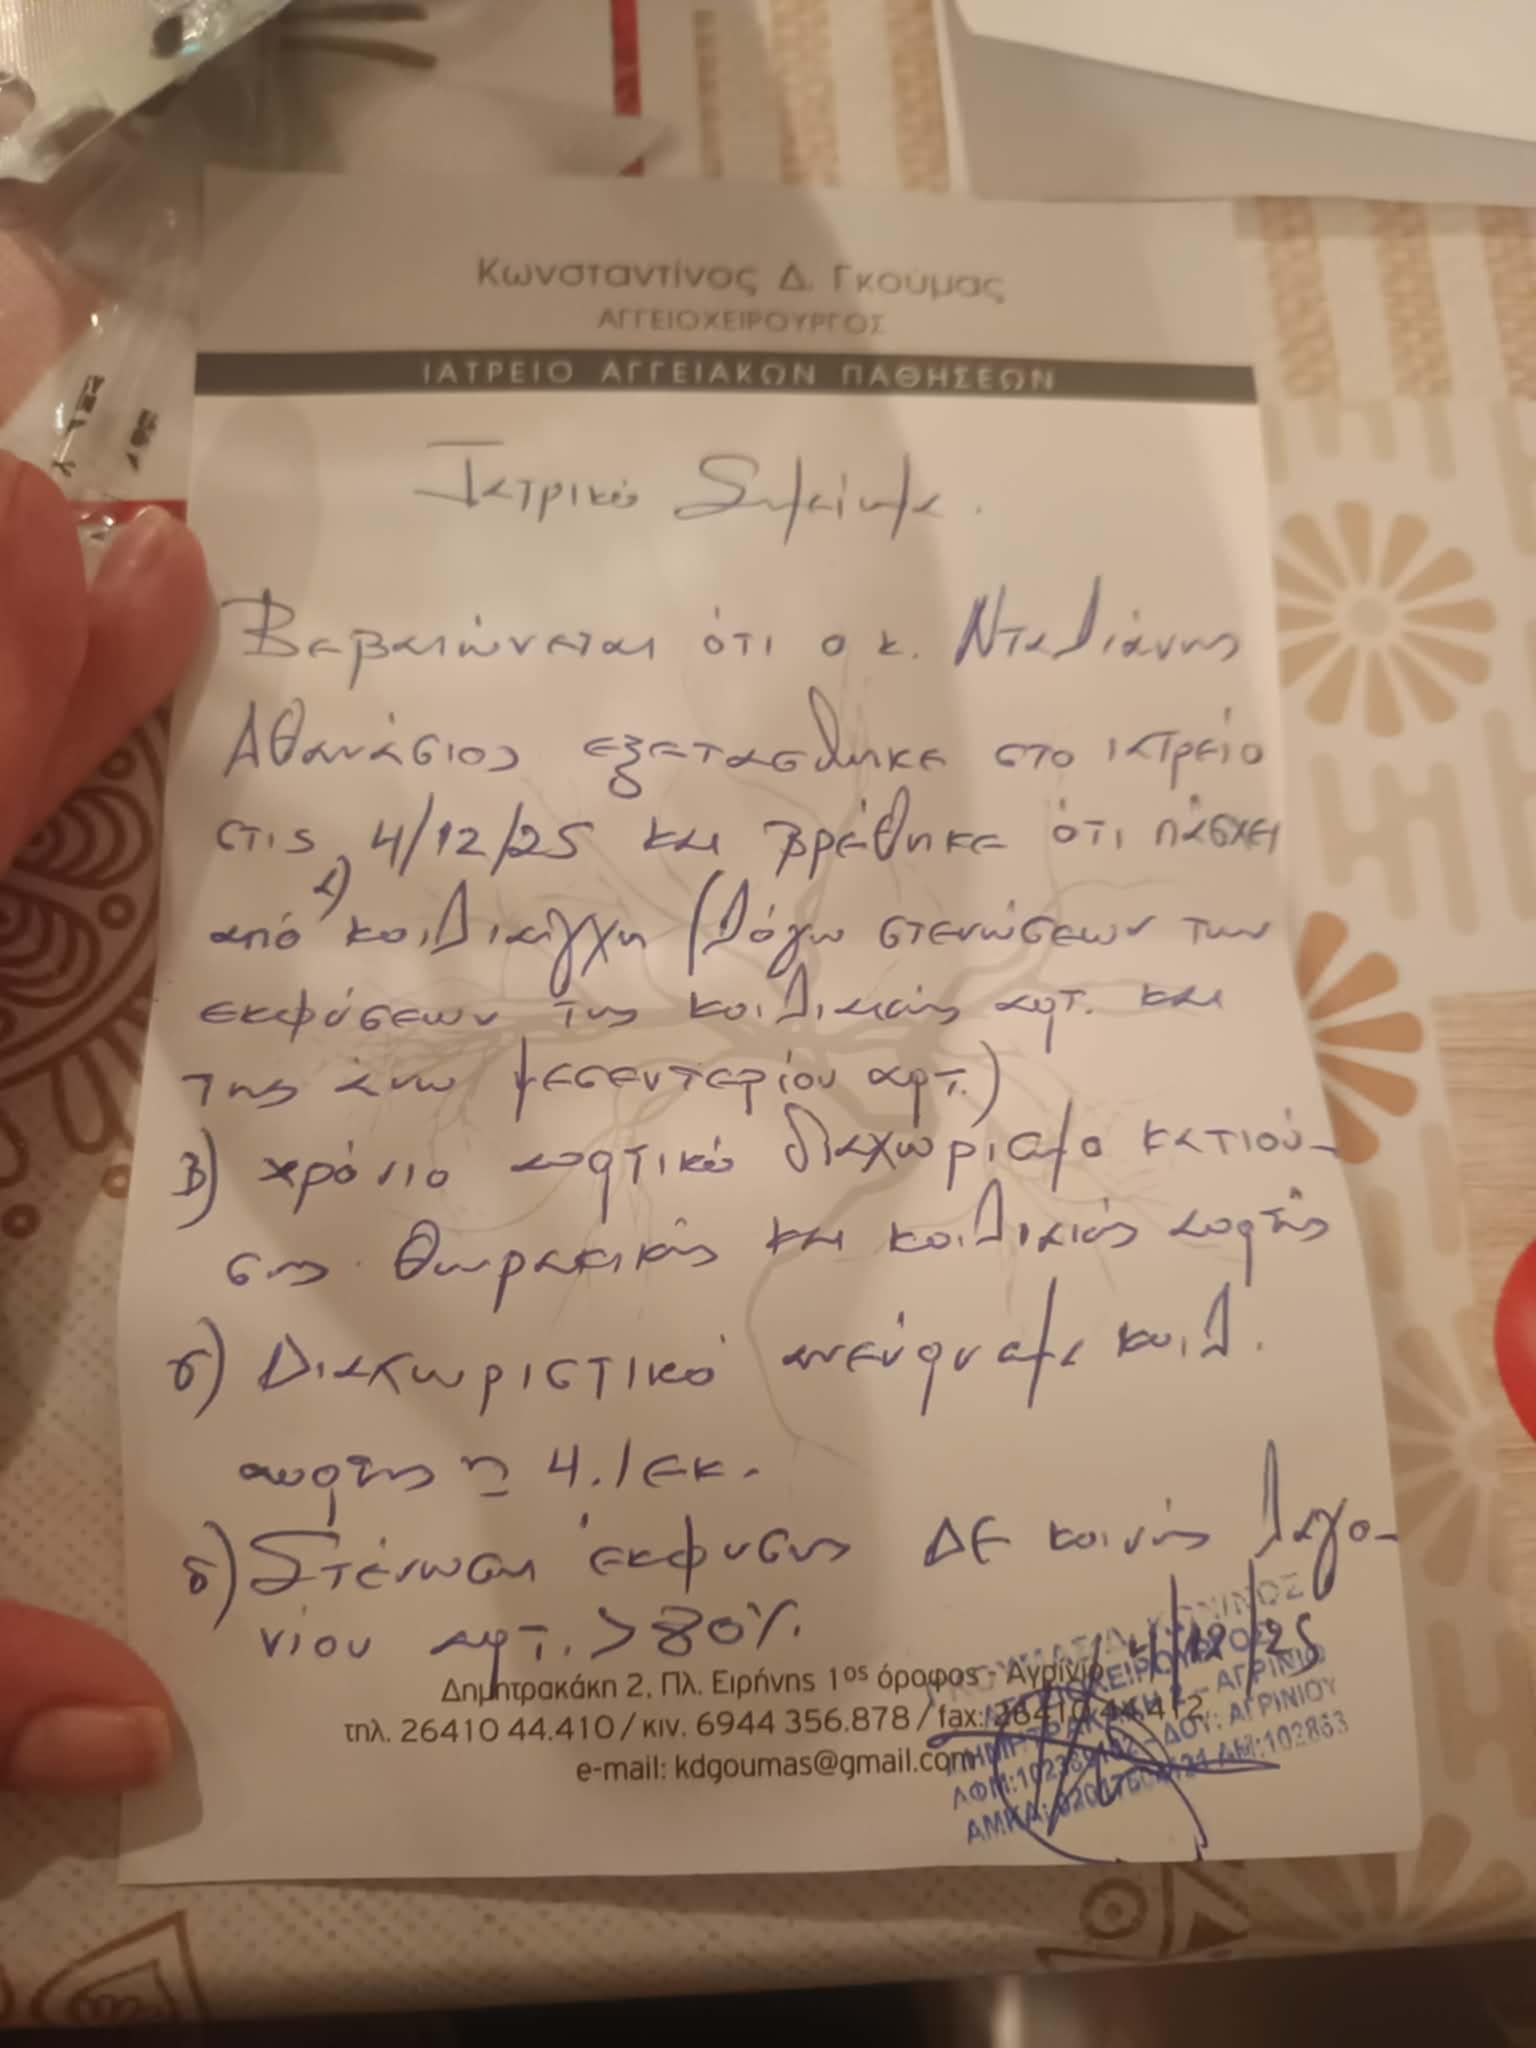 Κωνσταντίνος Δ. Γκούμας
ΑΓΓΕΙΟΧΕΙΡΟΥΡΓΟΣ
ΙΑΤΡΕΙΟ ΑΓΓΕΙΑΚΩΝ ΠΑΘΗΣΕΩΝ
Ιατρικό Σημείωμα.
Βεβαιώνεται ότι ο κ. Νταλιάνης
Αθανάσιος εξετασθηκε στο ιατρείο
στις 4/12/25 και βρέθηκε ότι πάσχει
από α) κοιλιαγχη (λόγω στενώσεων των
εκφύσεων της κοιλιακής αρτ. και
της άνω μεσεντερίου αρτ.)
Β) χρόνιο αορτικό διαχωρισμο κατιού-
σης θωρακικής και κοιλιακής αορτής
γ) Διαχωριστικό ανεύρυσμα κοιλ.
αορτης 4.1 εκ.
δ) Στένωση έκφυσης ΔΕ κοινής λαγο-
νίου αρτ. >80%.
4/12/25
Δημητρακάκη 2, Πλ. Ειρήνης 1ος όροφος - Αγρίνιο
τηλ. 26410 44.410 / κιν. 6944 356.878 / fax: 26410 44 412
e-mail: kdgoumas@gmail.com
ΓΚΟΥΜΑΣ Δ. ΚΩΝ/ΝΟΣ
ΑΓΓΕΙΟΧΕΙΡΟΥΡΓΟΣ
ΔΗΜΗΤΡΑΚΑΚΗ 2 - ΑΓΡΙΝΙΟ
ΔΟΥ: ΑΓΡΙΝΙΟΥ
ΑΜ:102863